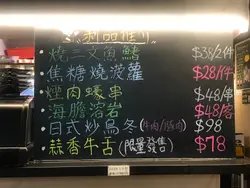 剩品推介
·燒三文魚鰭 $38/2件
·焦糖燒菠蘿 $28/件
·燶肉蠔串 $48/串
·海膽溶岩 $48/客
·日式炒烏冬(牛肉/豚肉) $98
·蒜香牛舌(限量發售) $78